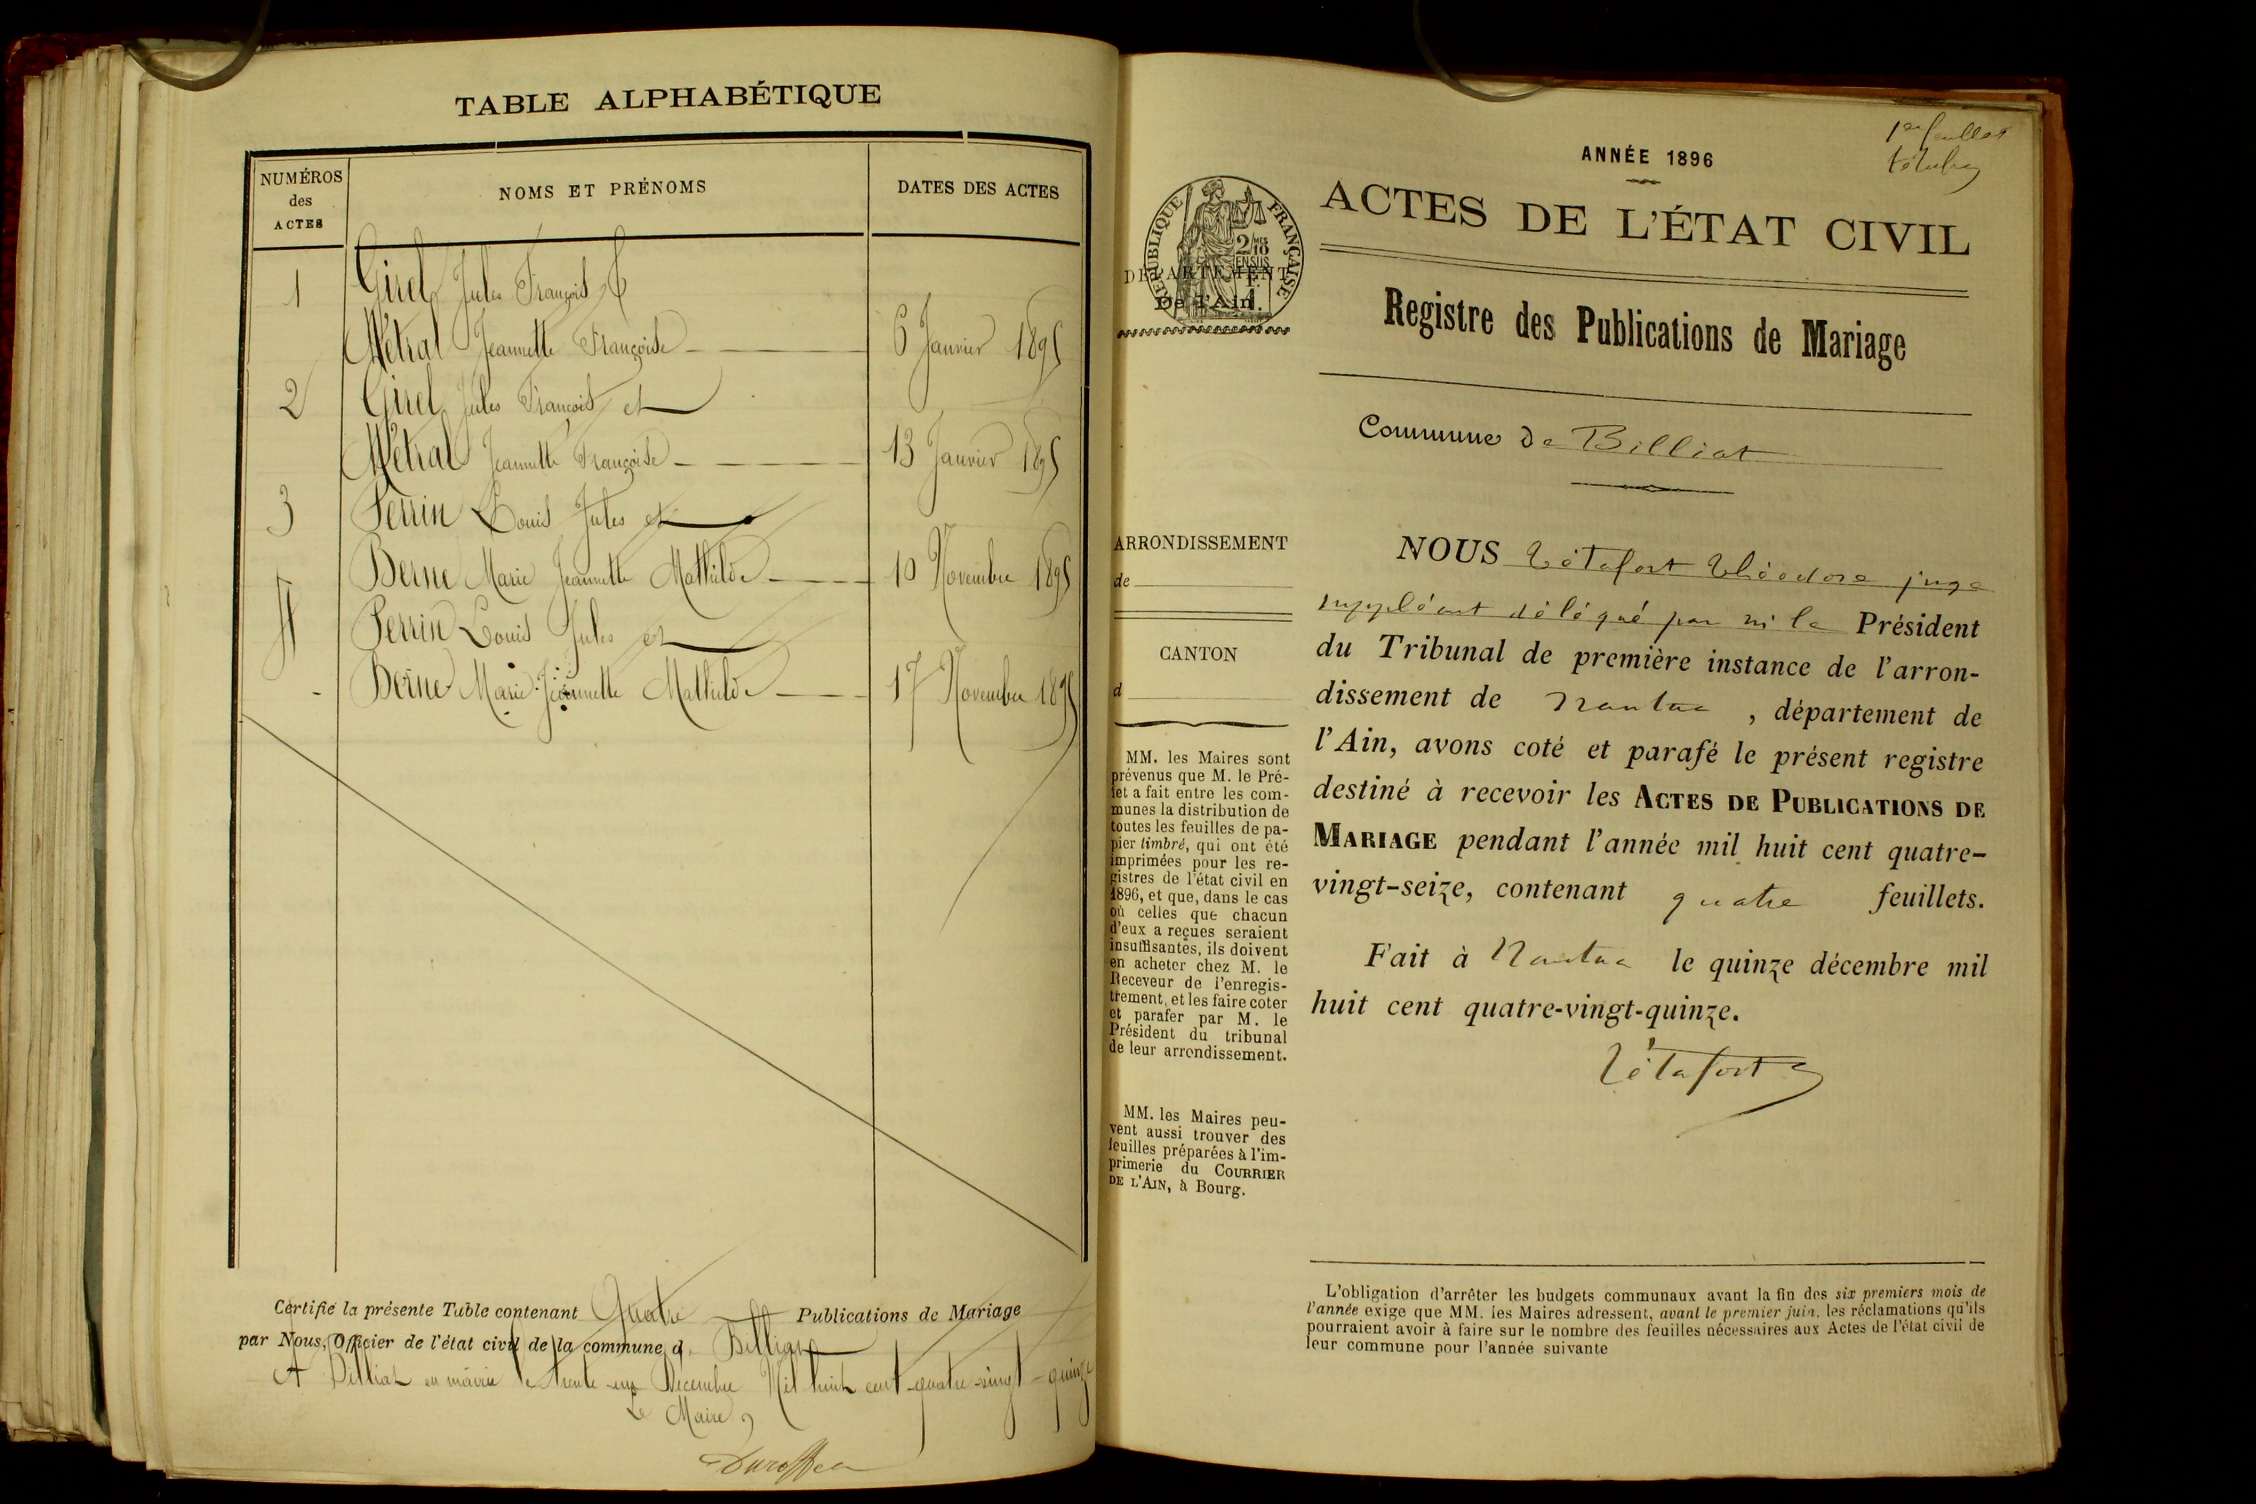 TABLE ALPHABÉTIQUE
NUMÉROS
des
ACTES
NOMS ET PRÉNOMS
DATES DES ACTES
1 Girel Jules François &
Métral Jeannette Françoise 6 Janvier 1895
2 Girel Jules François et
Métral Jeannette Françoise 13 Janvier 1895
3 Perrin Louis Jules et
Berne Marie Jeannette Mathilde 10 Novembre 1895
4 Perrin Louis Jules et
Berne Marie Jeannette Mathilde 17 Novembre 1895
Certifié la présente Table contenant Quatre Publications de Mariage
par Nous, Officier de l'état civil de la commune d. Billiat
A Billiat en mairie le trente un Décembre Mil huit cent quatre vingt-quinze
Le Maire,
1er feuillet
ANNÉE 1896
ACTES DE L'ÉTAT CIVIL
RÉPUBLIQUE FRANÇAISE
2 MES
10
EN SUS
DÉPARTEMENT
De l'Ain
Registre des Publications de Mariage
Commune de Billiat
NOUS Tétafort Théodore juge
suppléant délégué par m le Président
du Tribunal de première instance de l'arron-
dissement de Nantua , département de
l'Ain, avons coté et parafé le présent registre
destiné à recevoir les ACTES DE PUBLICATIONS DE
MARIAGE pendant l'année mil huit cent quatre-
vingt-seize, contenant quatre feuillets.
Fait à Nantua le quinze décembre mil
huit cent quatre-vingt-quinze.
Tétafort
ARRONDISSEMENT
de
CANTON
d
MM. les Maires sont
prévenus que M. le Pré-
fet a fait entre les com-
munes la distribution de
toutes les feuilles de pa-
pier timbré, qui ont été
imprimées pour les re-
gistres de l'état civil en
1896, et que, dans le cas
où celles que chacun
d'eux a reçues seraient
insuffisantes, ils doivent
en acheter chez M. le
Receveur de l'enregis-
trement, et les faire coter
et parafer par M. le
Président du tribunal
de leur arrondissement.
MM. les Maires peu-
vent aussi trouver des
feuilles préparées à l'im-
primerie du COURRIER
DE L'AIN, à Bourg.
L'obligation d'arrêter les budgets communaux avant la fin des six premiers mois de
l'année exige que MM. les Maires adressent, avant le premier juin, les réclamations qu'ils
pourraient avoir à faire sur le nombre des feuilles nécessaires aux Actes de l'état civil de
leur commune pour l'année suivante